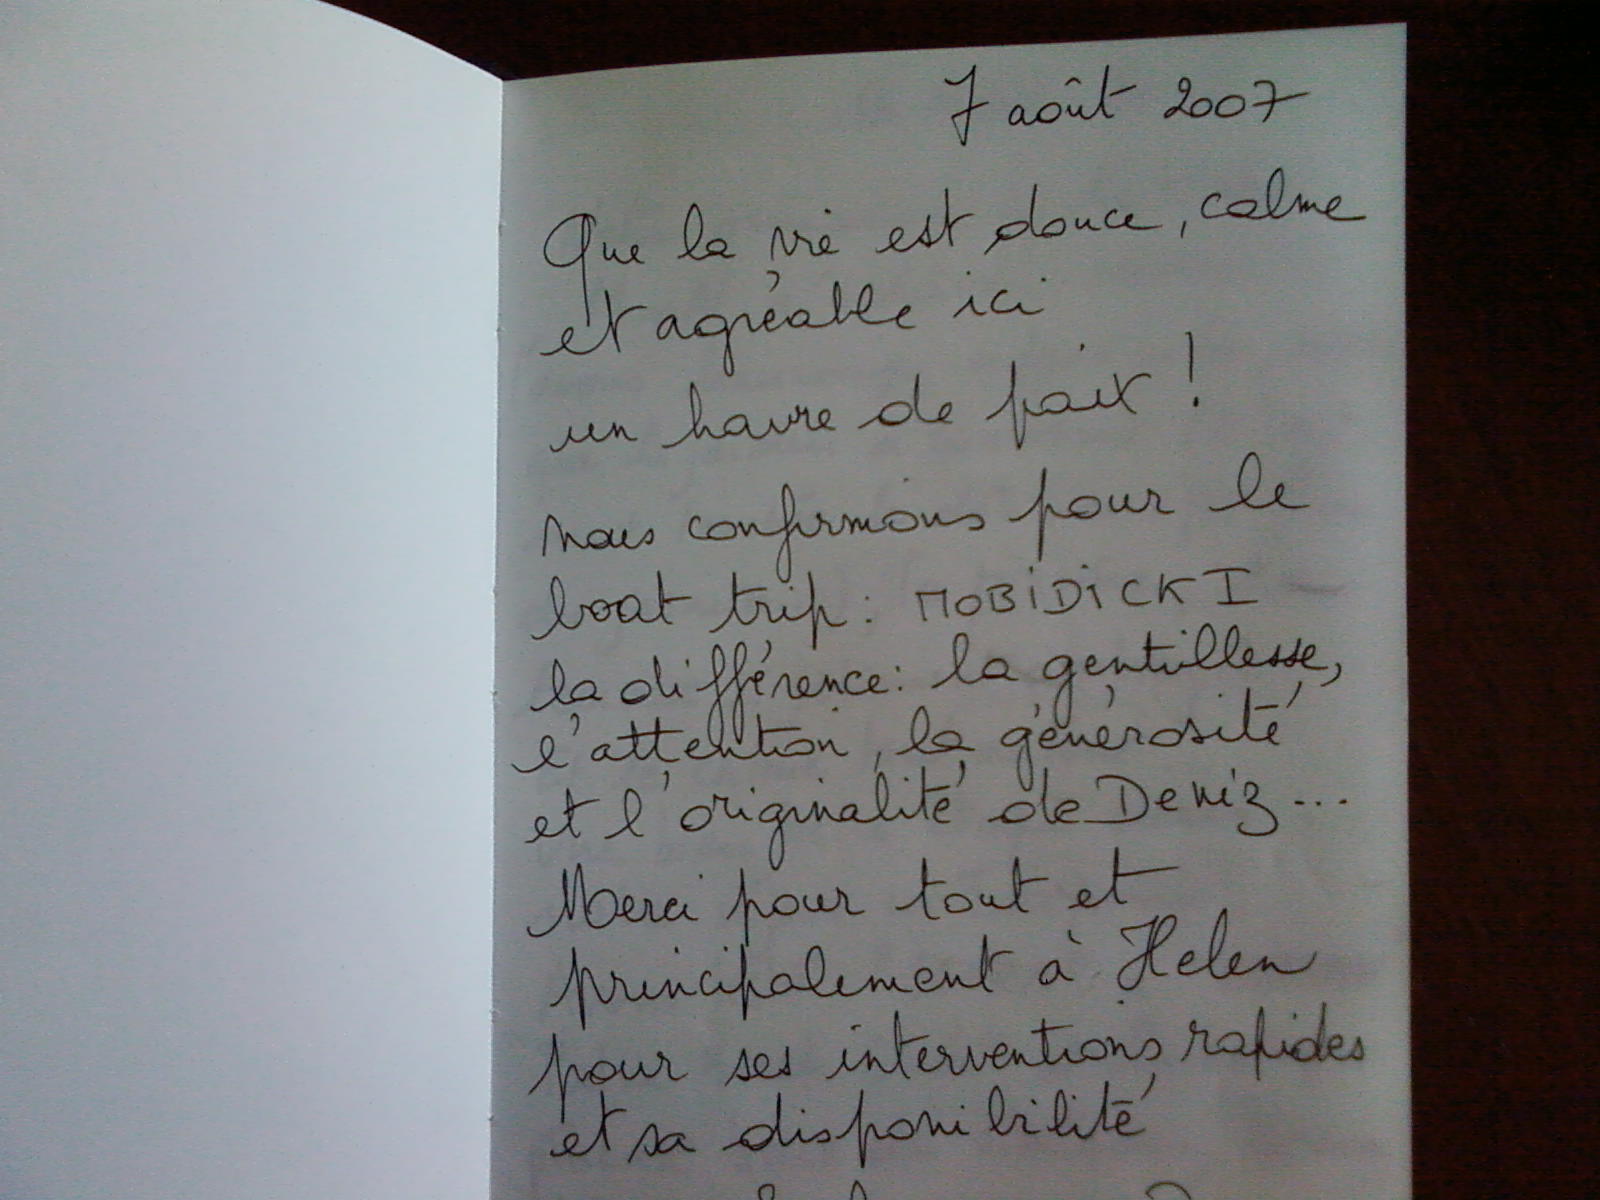 7 août 2007
Que la vie est douce, calme
et agréable ici
un havre de paix !
nous confirmons pour le
boat trip : MOBiDiCK I
la différence : la gentillesse,
l'attention, la générosité
et l'originalité de Deniz...
Merci pour tout et
principalement à Helen
pour ses interventions rapides
et sa disponibilité